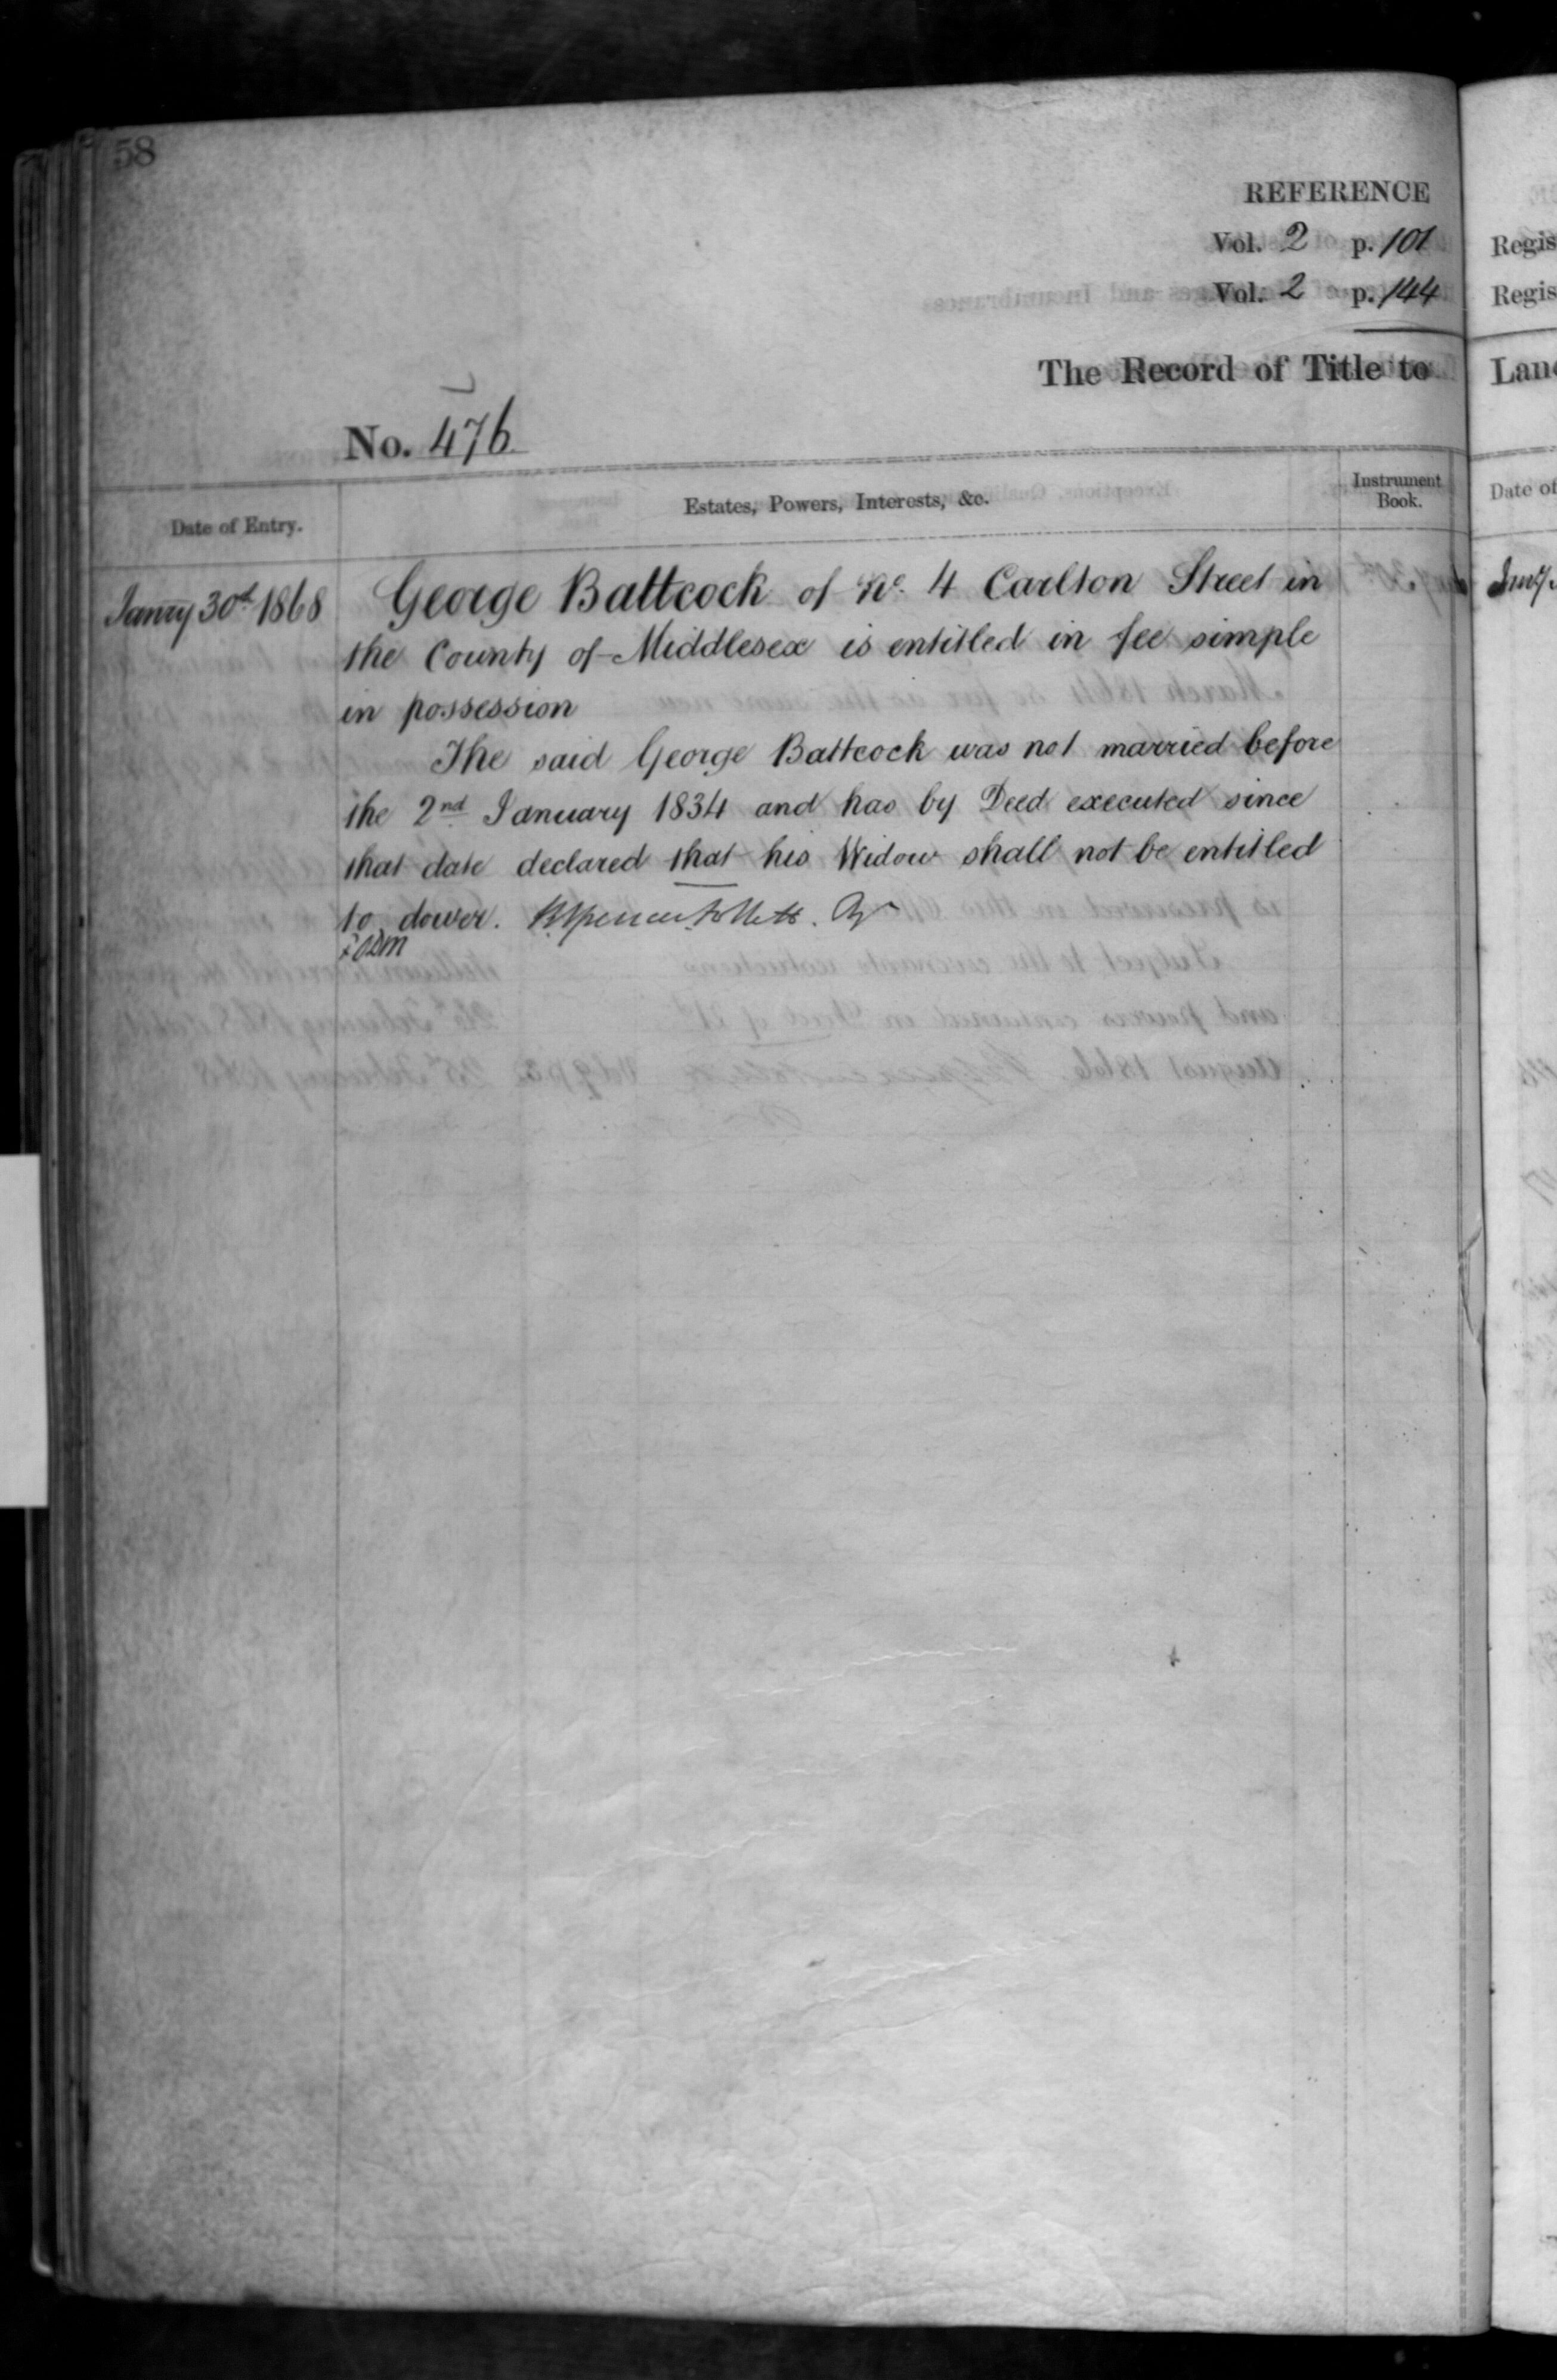 58
REFERENCE
Vol. 2 p. 101
Vol. 2 p. 144
The Record of Title to
No. 476
Date of Entry.
Estates, Powers, Interests, &c.
Instrument Book.
Janry 30th 1868
George Battcock of No. 4 Carlton Street in
the County of Middlesex is entitled in fee simple
in possession
The said George Battcock was not married before
the 2nd January 1834 and has by Deed executed since
that date declared that his Widow shall not be entitled
to dower.
Regis
Regis
Land
Date of